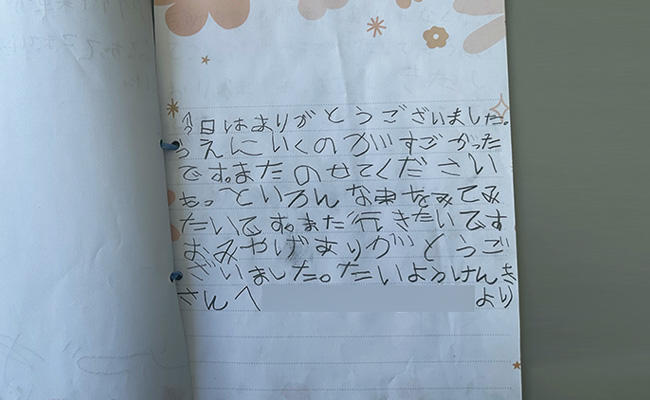 今日はありがとうございました。
うえにいくのがすごかった
です。またのせてください
もっといろんなまちをみてみ
たいです。また行きたいです
おみやげありがとうご
ざいました。たいようけんき
さんへ より